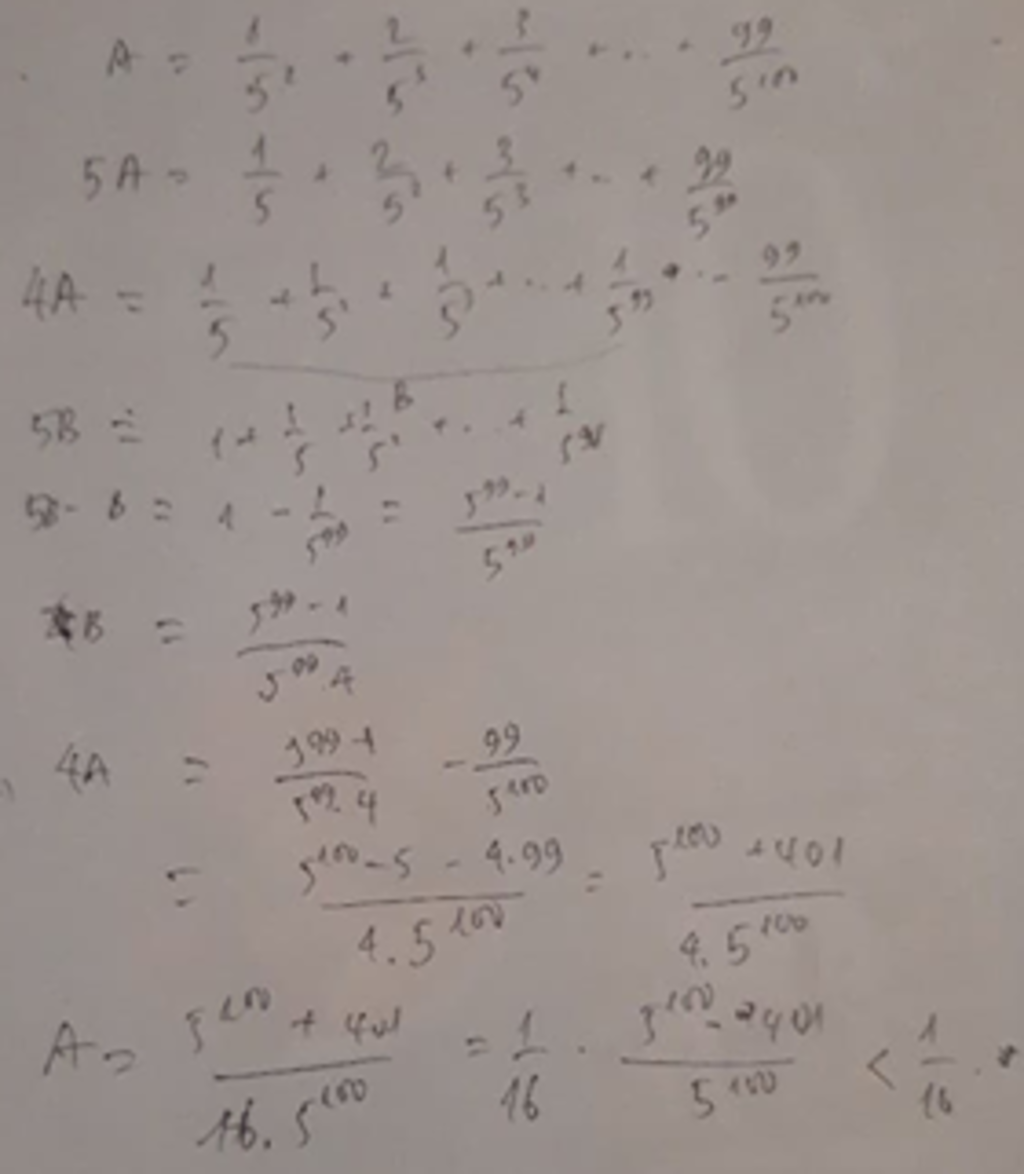 A = 1/5² + 2/5³ + 3/5⁴ + ... + 99/5¹⁰⁰
5A = 1/5 + 2/5² + 3/5³ + ... + 99/5⁹⁹
4A = 1/5 + 1/5² + 1/5³ + ... + 1/5⁹⁹ - 99/5¹⁰⁰
B
5B = 1 + 1/5 + 1/5² + ... + 1/5⁹⁸
5B - B = 1 - 1/5⁹⁹ = (5⁹⁹ - 1)/5⁹⁹
B = (5⁹⁹ - 1)/(5⁹⁹ . 4)
4A = (5⁹⁹ - 1)/(5⁹⁹ . 4) - 99/5¹⁰⁰
= (5¹⁰⁰ - 5 - 4.99)/(4.5¹⁰⁰) = (5¹⁰⁰ + 401)/(4.5¹⁰⁰)
A = (5¹⁰⁰ + 401)/(16.5¹⁰⁰) = 1/16 . (5¹⁰⁰ - 401)/5¹⁰⁰ < 1/16 .